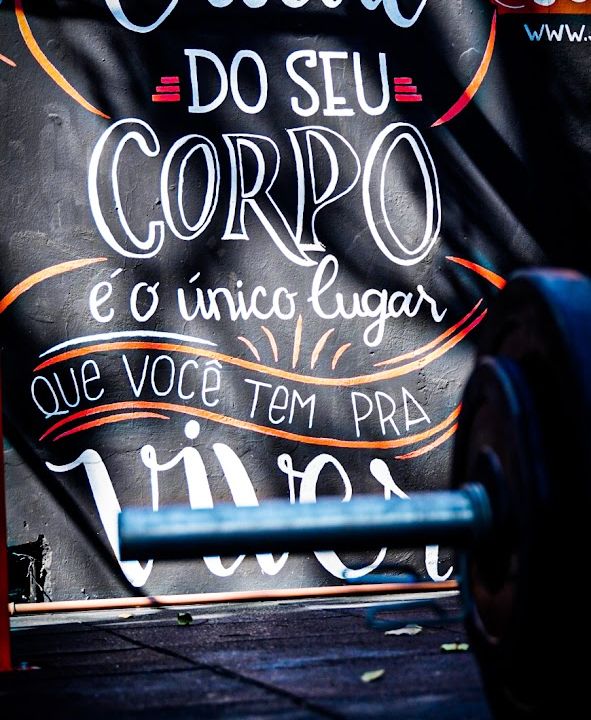 DO SEU
CORPO
é o único lugar
QUE VOCÊ TEM PRA
viver
WWW.